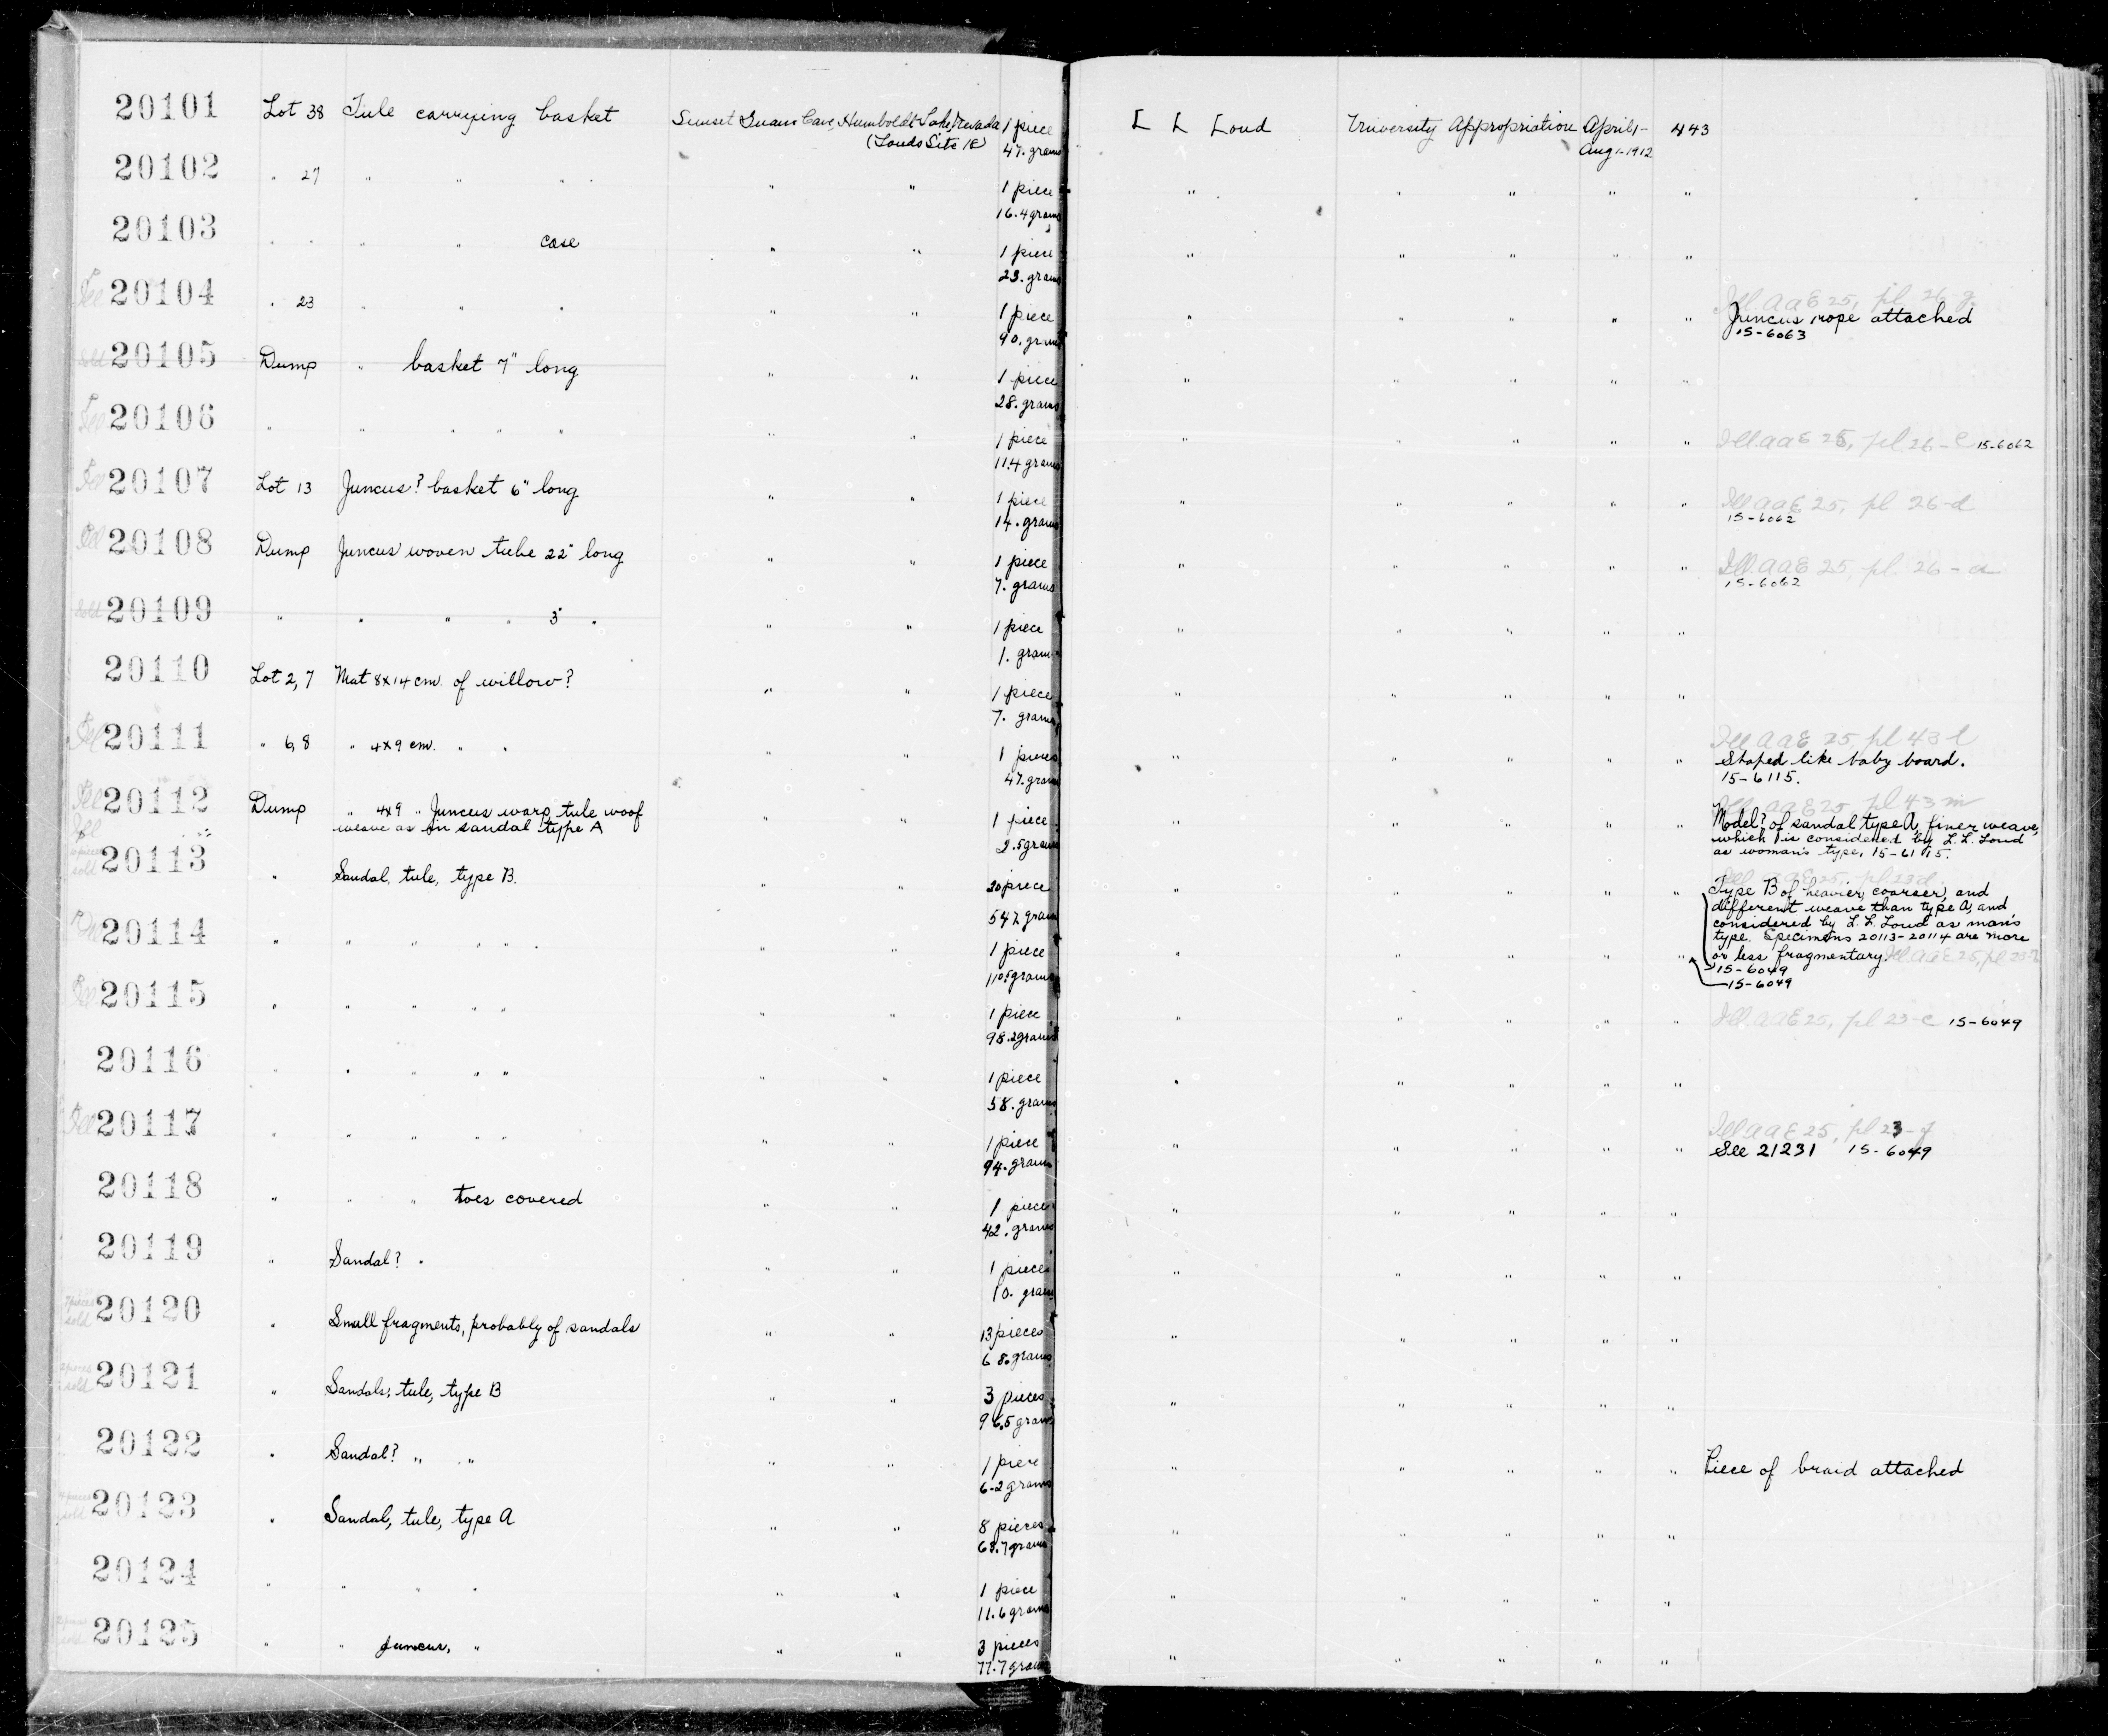 20101 Lot 38 Tule carrying basket Sunset Guano Cave, Humboldt Lake, Nevada 1 piece L L Loud University Appropriation April 1- 443
(Louds Site 18) 47. grams Aug 1-1912
20102 " 27 " " " " " 1 piece " " " " "
16.4 grams
20103 " " " " case " " 1 piece " " " " "
23. grams
Ill 20104 " 23 " " " " " 1 piece " " " " " Ill. AAE 25, pl. 26-g
90. grams Juncus rope attached
15-6063
sold 20105 Dump " basket 7" long " " 1 piece " " " " "
28. grams
Ill 20106 " " " " " " " 1 piece " " " " " Ill. AAE 25, pl. 26-c 15-6062
11.4 grams
Ill 20107 Lot 13 Juncus? basket 6" long " " 1 piece " " " " " Ill AAE 25, pl 26-d
14. grams 15-6062
Ill 20108 Dump Juncus woven tube 22" long " " 1 piece " " " " " Ill. AAE 25, pl. 26-a
7. grams 15-6062
sold 20109 " " " " 3" " " " 1 piece " " " " "
1. gram
20110 Lot 2, 7 Mat 8x14 cm. of willow? " " 1 piece " " " " "
7. grams
Ill 20111 " 6, 8 " 4x9 cm. " " " " 1 pieces " " " " " Ill AAE 25 pl 43 l
47. grams Shaped like baby board.
15-6115.
Ill 20112 Dump " 4x9 " Juncus warp, tule woof " " 1 piece " " " " " Ill AAE 25 pl 43 m
weave as in sandal type A 2.5 grams Model? of sandal type A, finer weave,
which is considered by L. L. Loud
as woman's type, 15-6115.
Ill
sold 20113 " Sandal, tule, type B. " " 20 piece " " " " " Ill AAE 25, pl 23 d.
547. grams Type B of heavier, coarser, and
different weave than type A, and
considered by L. L. Loud as man's
type. Specimens 20113-20114 are more
20114 " " " " " " " 1 piece " " " " " or less fragmentary. Ill. AAE 25, pl 23
110.5 grams 15-6049
15-6049
Ill 20115 " " " " " " " 1 piece " " " " " Ill. AAE 25, pl 23-c 15-6049
98.2 grams
20116 " " " " " " " 1 piece " " " " "
58. grams
Ill 20117 " " " " " " " 1 piece " " " " " Ill AAE 25, pl 23-f
94. grams See 21231 15-6049
20118 " " " toes covered " " 1 piece " " " " "
42. grams
20119 " Sandal? " " " 1 pieces " " " " "
10. grams
7 pieces sold 20120 " Small fragments, probably of sandals " " 13 pieces " " " " "
68. grams
2 pieces sold 20121 " Sandals, tule, type B " " 3 pieces " " " " "
96.5 grams
20122 " Sandal? " " " " 1 piece " " " " " Piece of braid attached
6.2 grams
sold 20123 " Sandal, tule, type A " " 8 pieces " " " " "
68.7 grams
20124 " " " " " " 1 piece " " " " "
11.6 grams
sold 20125 " " Juncus, " " " 3 pieces " " " " "
77.7 grams